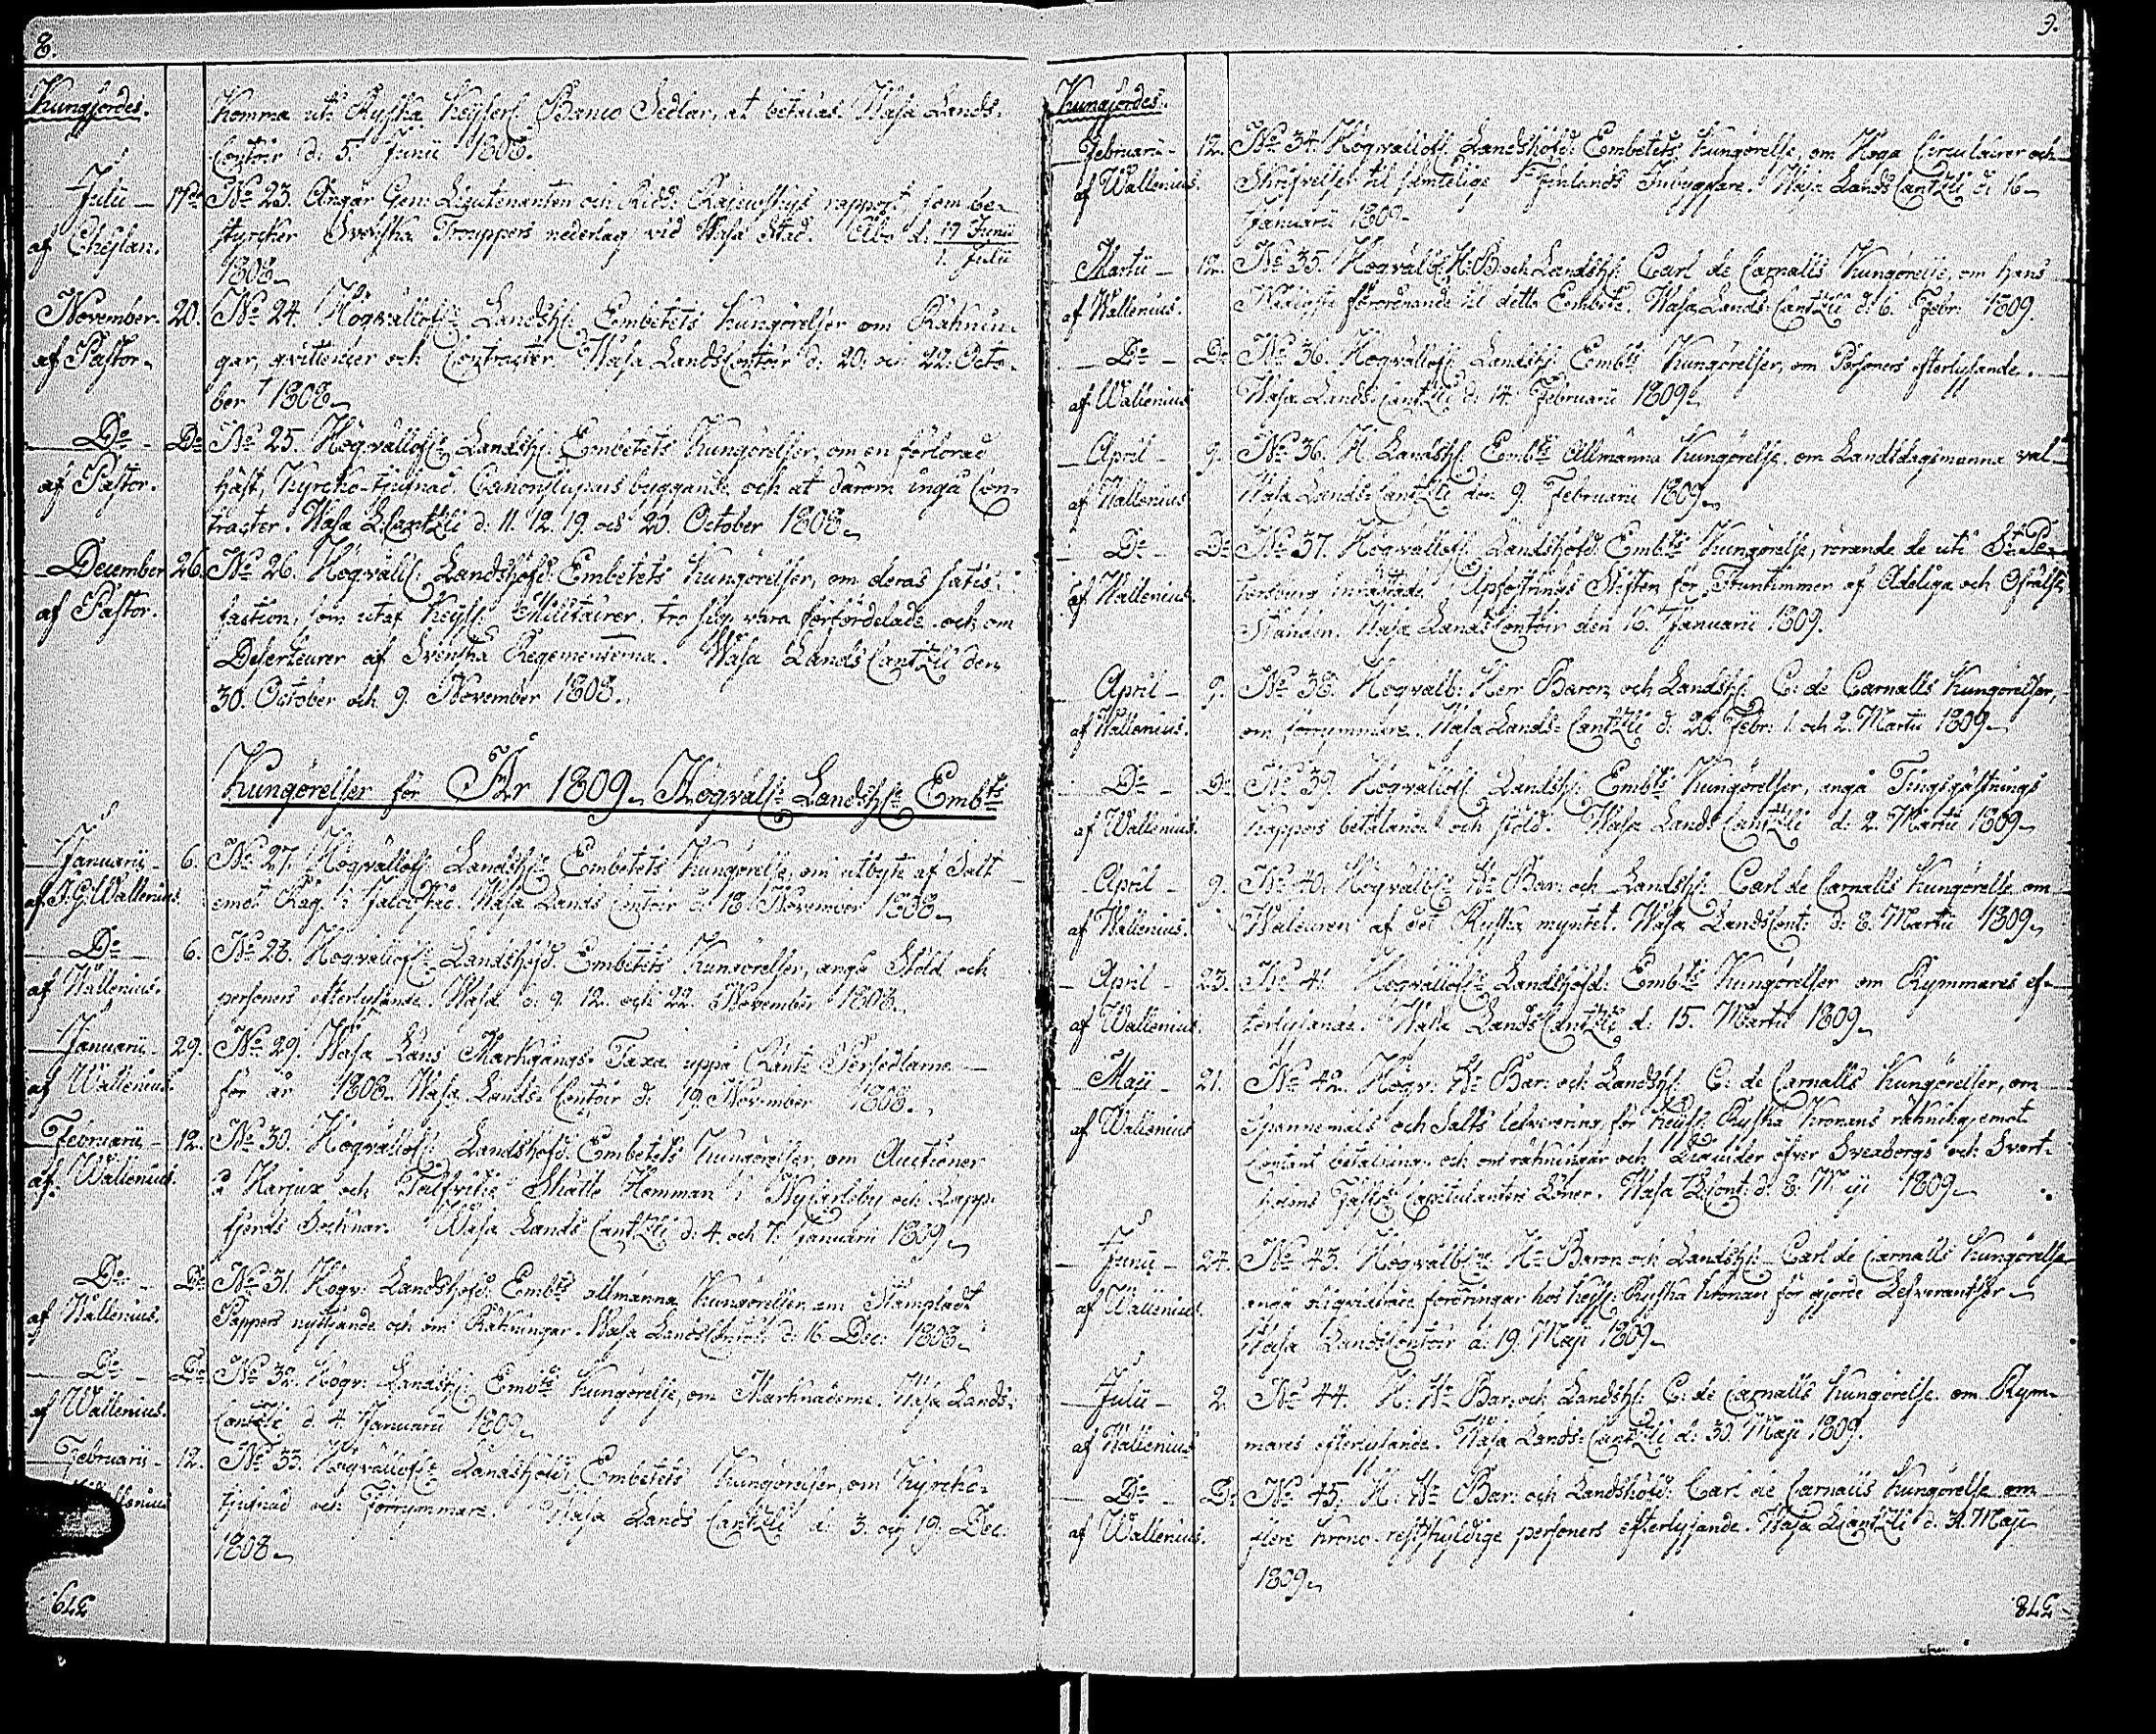 8.
Kungjordes.
Komma uti Ryska Keyserl. Banco Sedlar, at betalas. Wasa Lands-
Contoir d. 5. Junii 1808.
Julii - 17de No 23. Angår Gen: Lieutenanten och Ridd: Rajewskys rapport, som be-
af Cheslan. styrcker Svenska Trouppers nederlag vid Wasa Stad. Åbo d. 19 Junii / 1. Julii
1808.
November. 20. No 24. Högvällofl. Landsh: Embetets Kungörelser om Räknin-
af Pastor. gar, qvittencier och Contracter. Wasa LandsContoir d. 20. och 22. Octo-
ber 1808.
Do - Do No 25. Högvällofl. Landsh: Embetets Kungörelser, om en förlorad
af Pastor. häst, Kyrcko-tjufnad, byggande och at därom ingå Con-
tracter. Wasa L:Cantzli d. 11. 12. 19. och 20. October 1808.
December 26. No 26. Högvällofl: Landshöfd: Embetets Kungörelser, om deras satis-
af Pastor. faction, som utaf Keyss: Militairer, tro sig vara förfördelade och om
Deserteurer af Svenska Regementerna. Wasa Lands Cantzli den
30. October och 9. November 1808.
Kungörelser för År 1809. Högvälb: Landsh: Embts
Januarii - 6. No 27. Högvällofl. Landsh: Embetets Kungörelse, om utbyte af Salt
af J. G. Wallenius. emot Råg i Jacobstad. Wasa Lands Contoir d. 18. November 1808.
Do - 6. No 28. Högvällofl. Landshöfd: Embetets Kungörelser, angå Stöld och
af Wallenius. personers efterlysande. Wasa d. 9. 12. och 22. November 1808.
Januarii. 29. No 29. Wasa Läns Markgångs-Taxa uppå Ränte Persedlarne
af Wallenius. för år 1808. Wasa Lands-Contoir d. 19. November 1808.
Februarii - 12. No 30. Högvällofl. Landshöfd: Embetets Kungörelser, om Auctioner
af Wallenius. å Harjux och Skatte Hemman i Nykarleby och Lapp-
fjerds Socknar. Wasa Lands Cantzli d. 4. och 7. Januarii 1809.
Do - Do No 31. Högv: Landshöfd: Embts allmänna Kungörelser om Stämpladt
af Wallenius. Pappers nyttjande och om Räkningar. Wasa LandsContoir d. 16. Dec: 1808.
Do - Do No 32. Högv: Landsh: Embts Kungörelse, om Marknaderne. Wasa Lands-
af Wallenius. Cantzli d. 4. Januarii 1809.
Februarii - 12. No 33. Högvällofl. Landshöfd: Embetets Kungörelser, om Kyrcko-
Wallenius tjufnad och Förrymmare. Wasa Lands Cantzli d. 3. och 19. Dec:
1808.
379.
9.
Kungjordes.
Februarii - 12. No 34. Högvällofl. Landshöfd: Embetets Kungörelse, om Höga Circulairer och
af Wallenius. Skrifvelser til samtelige Finlands Inbyggare. Wasa Lands Cantzli d. 16
Januarii 1809.
Martii - 12. No 35. Högvälb. H:B: och Landsh: Carl de Carnalls Kungörelse, om hans
af Wallenius. förordnande til detta Embete. Wasa Lands-Cantzli d. 6. Febr: 1809.
Do - Do No 36. Högvällofl. Landsh: Embts Kungörelser, om Personers efterlysande.
af Wallenius Wasa Lands-Cantzli d. 14. Februarii 1809.
April - 9. No 36. H. Landsh: Embts Allmänna Kungörelse, om Landtdagsmanna val
af Wallenius Wasa Lands-Cantzli den 9. Februarii 1809.
Do - Do No 37. Högvällofl. Landshöfd: Embts Kungörelse, rörande de uti St Pe-
af Wallenius. tersburg inrättade Upfostrings Stiften för Fruntimmer af Adeliga och Ofrälse
Stånden. Wasa LandsContoir den 16. Januarii 1809.
April - 9. No 38. Högvälb: Herr Baron och Landsh: C: de Carnalls Kungörelser,
af Wallenius. om förrymmare. Wasa Lands-Cantzli d. 20. Febr: 1. och 2. Martii 1809.
Do - Do No 39. Högvällofl. Landsh: Embts Kungörelser, angå Tingsgästnings
af Wallenius. Kappers betalande och stöld. Wasa Lands Cantzli d. 2. Martii 1809.
April - 9. No 40. Högvälb: Hr Bar: och Landsh: Carl de Carnalls Kungörelse om
af Wallenius. Waleuren af det Ryska myntet. Wasa LandsCont: d. 8. Martii 1809.
April - 23. No 41. Högvällofl. Landshöfd: Embts Kungörelser om Rymmares ef-
af Wallenius. terlysande. Wasa Lands Cantzli d. 15. Martii 1809.
Maji - 21. No 42. Högv: Hr Bar: och Landsh: C: de Carnalls Kungörelser, om
af Wallenius Spannemåls och Salts lefverering för Keyss: Ryska Kronans räkning emot
Contant betalning, och om räkningar och Liquider öfver Sveaborgs och Svart-
holms Fästn: Capitulanters Löner. Wasa L:Cont: d. 8. Maji 1809.
Junii - 24. No 43. Högvälb: Hr Baron och Landsh: Carl de Carnalls Kungörelse
af Wallenius. angå oliqviderade fordringar hos Keyss: Ryska Kronan för gjorde Lefverantser
Wasa LandsContoir d. 19. Maji 1809.
Julii - 2. No 44. H: Hr Bar: och Landsh: C: de Carnalls Kungörelse om Rym-
af Wallenius mares efterlysande. Wasa Lands-Cantzli d. 30. Maji 1809.
Do - Do No 45. H: Hr Bar: och Landshöfd: Carl de Carnalls Kungörelse om
af Wallenius. flere krono-restskyldige personers efterlysande. Wasa L:Cantzli d. 31. Maji
1809.
378.